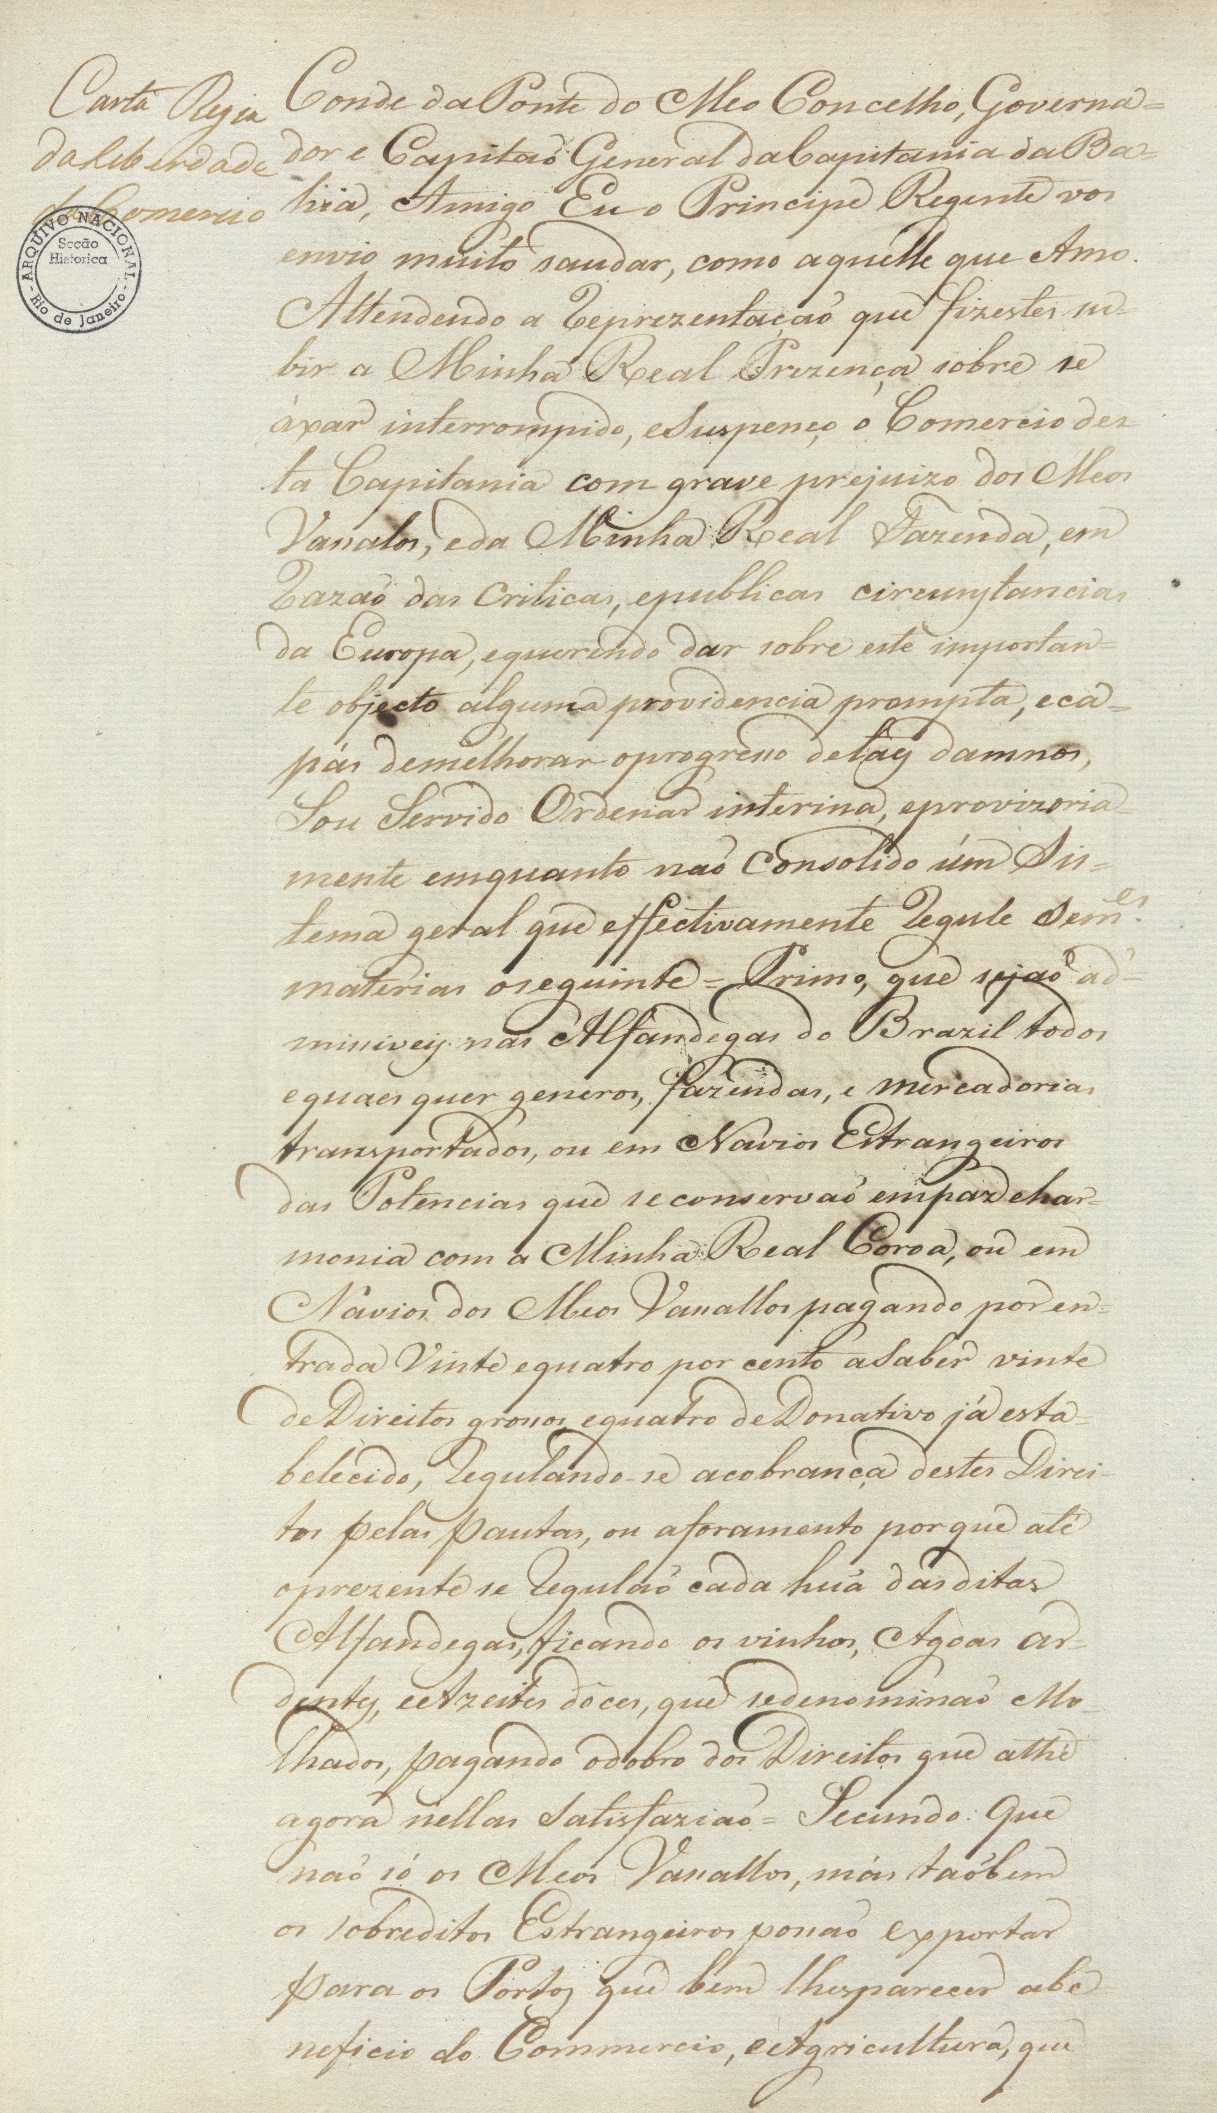 Carta Regia
da liberdade
do Comercio
ARQUIVO NACIONAL
Secção
Historica
- Rio de Janeiro -
Conde da Ponte do Meo Concelho, Governa=
dor e Capitaõ General da Capitania da Ba=
hia, Amigo Eu o Principe Regente vos
envio muito saudar, como aquelle que Amo.
Attendendo a Reprezentaçaõ que fizestes su-
bir a Minha Real Prezença sobre se
áxar interrompido, e Suspenço o Comercio des-
ta Capitania com grave prejuizo dos Meos
Vassalos, e da Minha Real Fazenda, em
Razaõ das criticas, e publicas circunstancias
da Europa, e querendo dar sobre este importan=
te objecto alguma providencia prompta, e ca-
pás de melhorar o progresso de taes damnos,
Sou Servido Ordenar interina, e provizoria-
mente emquanto naõ consolido úm Sis-
tema geral que effectivamente Regule Sem.es
materias o seguinte = Primo, que sejaõ ad-
missiveis nas Alfandegas do Brazil todos
e quaes quer generos, fazendas, e mercadorias
transportados, ou em Navios Estrangeiros
das Potencias que se conservaõ em paz e har-
monia com a Minha Real Coroa, ou em
Navios dos Meos Vassallos pagando por en-
trada Vinte e quatro por cento a Saber vinte
de Direitos grossos e quatro de Donativo já esta-
belecido, Regulando-se a cobrança destes Direi-
tos pelas pautas, ou aforamento por que até
o prezente se Regulaõ cada huã das ditas
Alfandegas, ficando os vinhos, Agoas ar-
dentes, e Azeites dôces, que se denominaõ Mo-
lhados, pagando o dobro dos Direitos que athé
agora nellas Satisfaziaõ = Secundo: Que
naõ só os Meos Vassallos, más taõbem
os sobreditos Estrangeiros possaõ exportar
para os Portos que bem lhes parecer a be-
neficio do Commercio, e Agricultura, que